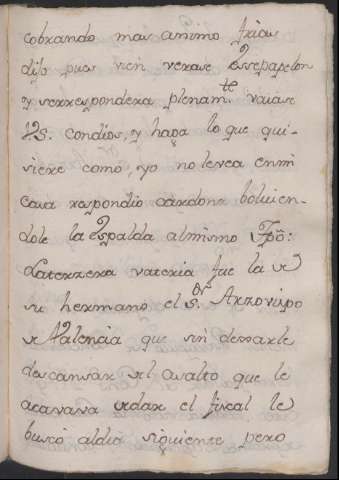 cobrando mas animo frias
dijo pues vien verase essepapelon
y serrespondera plenamte vaiase
Vs. condios, y haga lo que qui-
siere como yo no le vea en mi
casa respondio cardona bolvien-
dole la espalda almismo tpõ:
Laterzera vateria fue la de
su hermano el Sor Arzovispo
de Valencia que sin dexarle
descansar del asalto que le
acavava de dar el fiscal le
buscó aldia siguiente pero